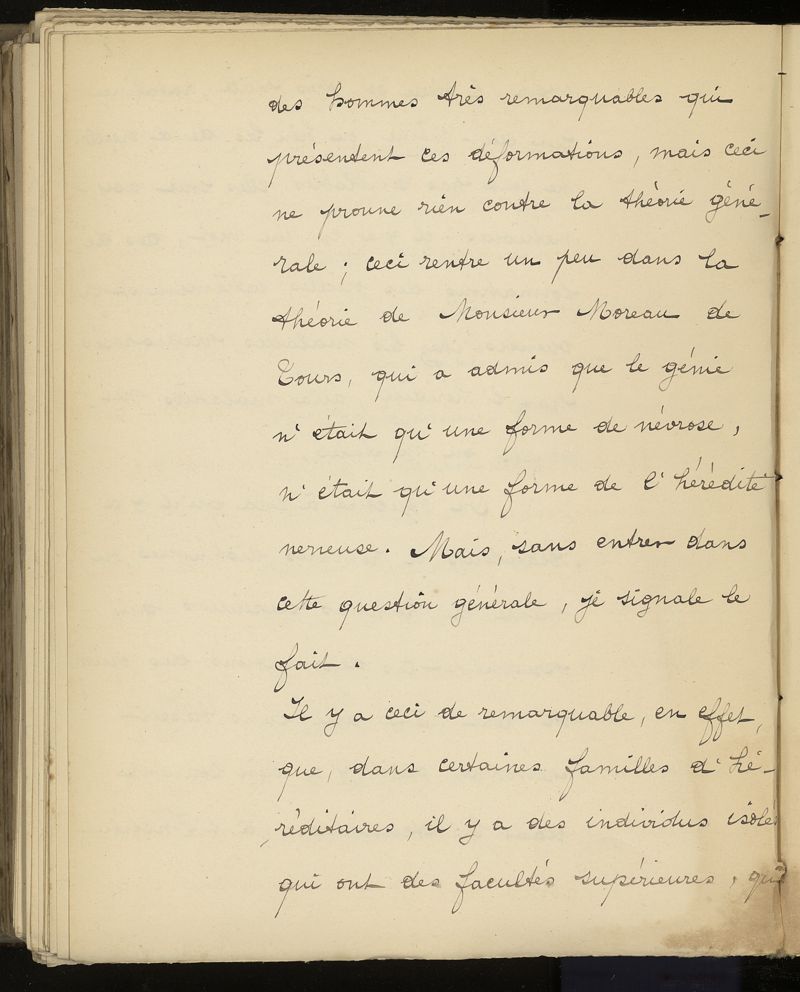 des hommes très remarquables qui
présentent ces déformations, mais ceci
ne prouve rien contre la théorie géné-
rale ; ceci rentre un peu dans la
théorie de Monsieur Moreau de
Tours, qui a admis que le génie
n'était qu'une forme de névrose,
n'était qu'une forme de l'hérédité
nerveuse. Mais, sans entrer dans
cette question générale, je signale le
fait.
Il y a ceci de remarquable, en effet,
que, dans certaines familles d'hé-
réditaires, il y a des individus isolés
qui ont des facultés supérieures, qui